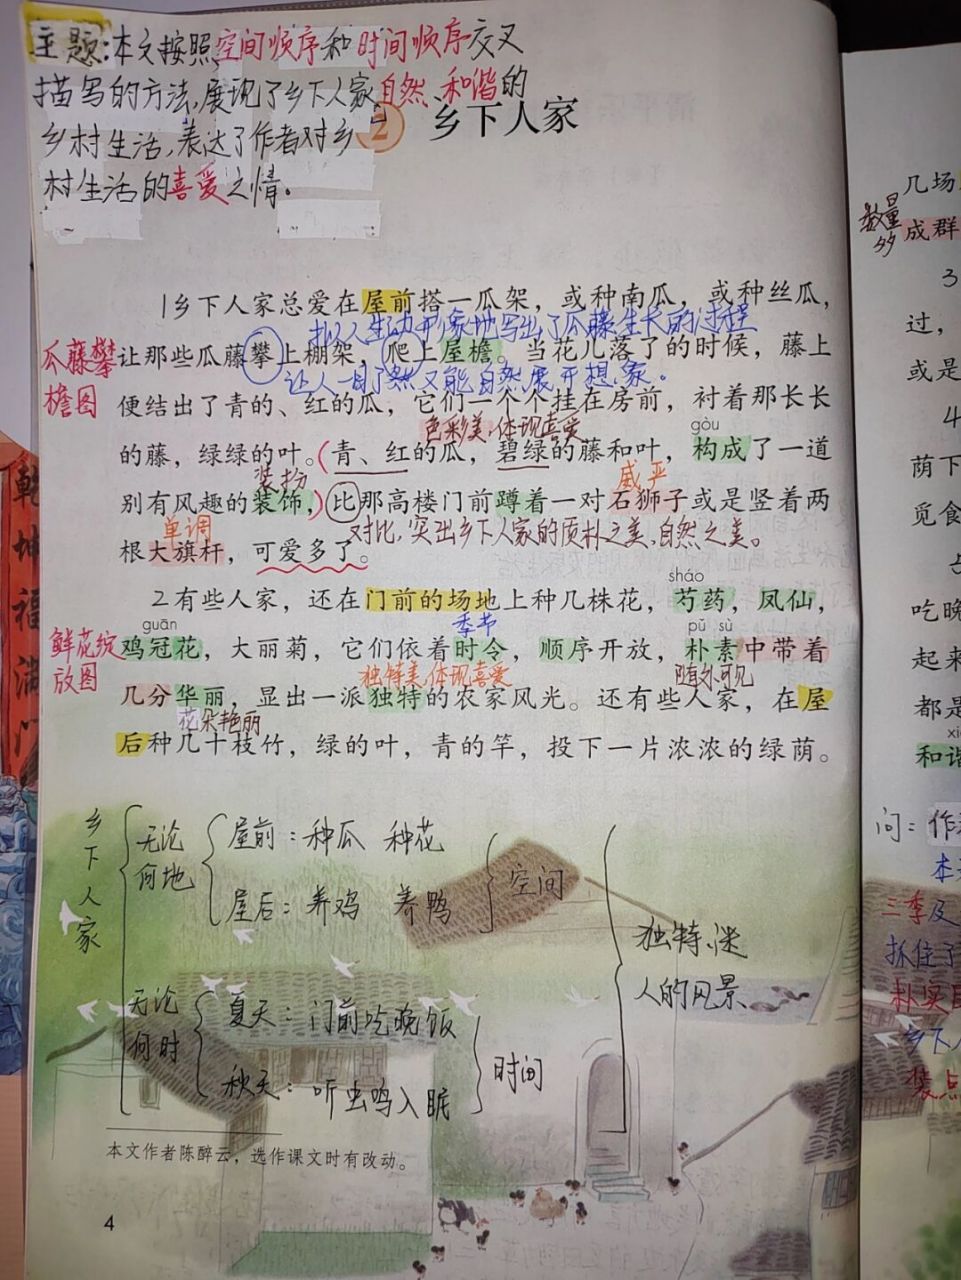 主题：本文按照空间顺序和时间顺序交叉
描写的方法，展现了乡下人家自然、和谐的
乡村生活，表达了作者对乡
村生活的喜爱之情。
2 乡下人家
1乡下人家总爱在屋前搭一瓜架，或种南瓜，或种丝瓜，
拟人生动形象地写出了瓜藤生长的过程
瓜藤攀
檐图
让那些瓜藤攀上棚架，爬上屋檐。当花儿落了的时候，藤上
让人一目了然又能自然展开想象。
便结出了青的、红的瓜，它们一个个挂在房前，衬着那长长
色彩美，体现喜爱
gòu
的藤，绿绿的叶。（青、红的瓜，碧绿的藤和叶，构成了一道
装扮
威严
别有风趣的装饰，）比那高楼门前蹲着一对石狮子或是竖着两
单调
对比，突出乡下人家的质朴之美，自然之美。
根大旗杆，可爱多了。
sháo
2有些人家，还在门前的场地上种几株花，芍药，凤仙，
guān
季节
pǔ sù
鲜花绽
放图
鸡冠花，大丽菊，它们依着时令，顺序开放，朴素中带着
独特美，体现喜爱
随处可见
几分华丽，显出一派独特的农家风光。还有些人家，在屋
花朵艳丽
后种几十枝竹，绿的叶，青的竿，投下一片浓浓的绿荫。
乡下人家
无论何地
屋前：种瓜 种花
屋后：养鸡 养鸭
空间
无论何时
夏天：门前吃晚饭
秋天：听虫鸣入眠
时间
独特、迷
人的风景
本文作者陈醉云，选作课文时有改动。
4
几场
数量多
成群
3
过，
或是
4
荫下
觅食
吃晚
起来
都是
和谐
问：作
本
三季及
抓住了
朴实
乡下人
装点
乾坤福满门